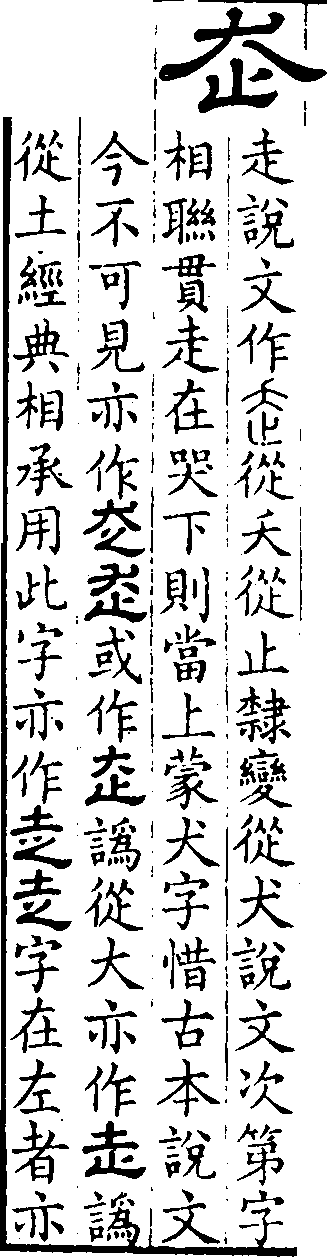 走說文作𧺆從夭從止隸變從犬說文次第字
相聯貫走在哭下則當上蒙犬字惜古本說文
今不可見亦作或作譌從大亦作走譌
從土經典相承用此字亦作字在左者亦